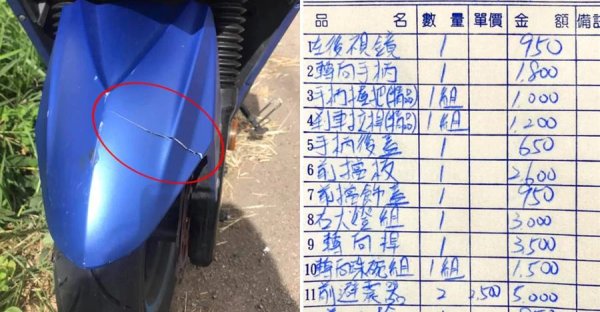 品 名 數量 單價 金額 備註
1 左後視鏡 1 950
2 轉向手柄 1 1.800
3 手柄 1組 1.000
4 剎車拉桿 1組 1.200
5 手柄後蓋 1 650
6 前擋板 1 2.600
7 前擋飾蓋 1 950
8 右大燈組 1 3.000
9 轉向桿 1 3.500
10 轉向珠碗組 1組 1.500
11 前避震器 2 2.500 5.000